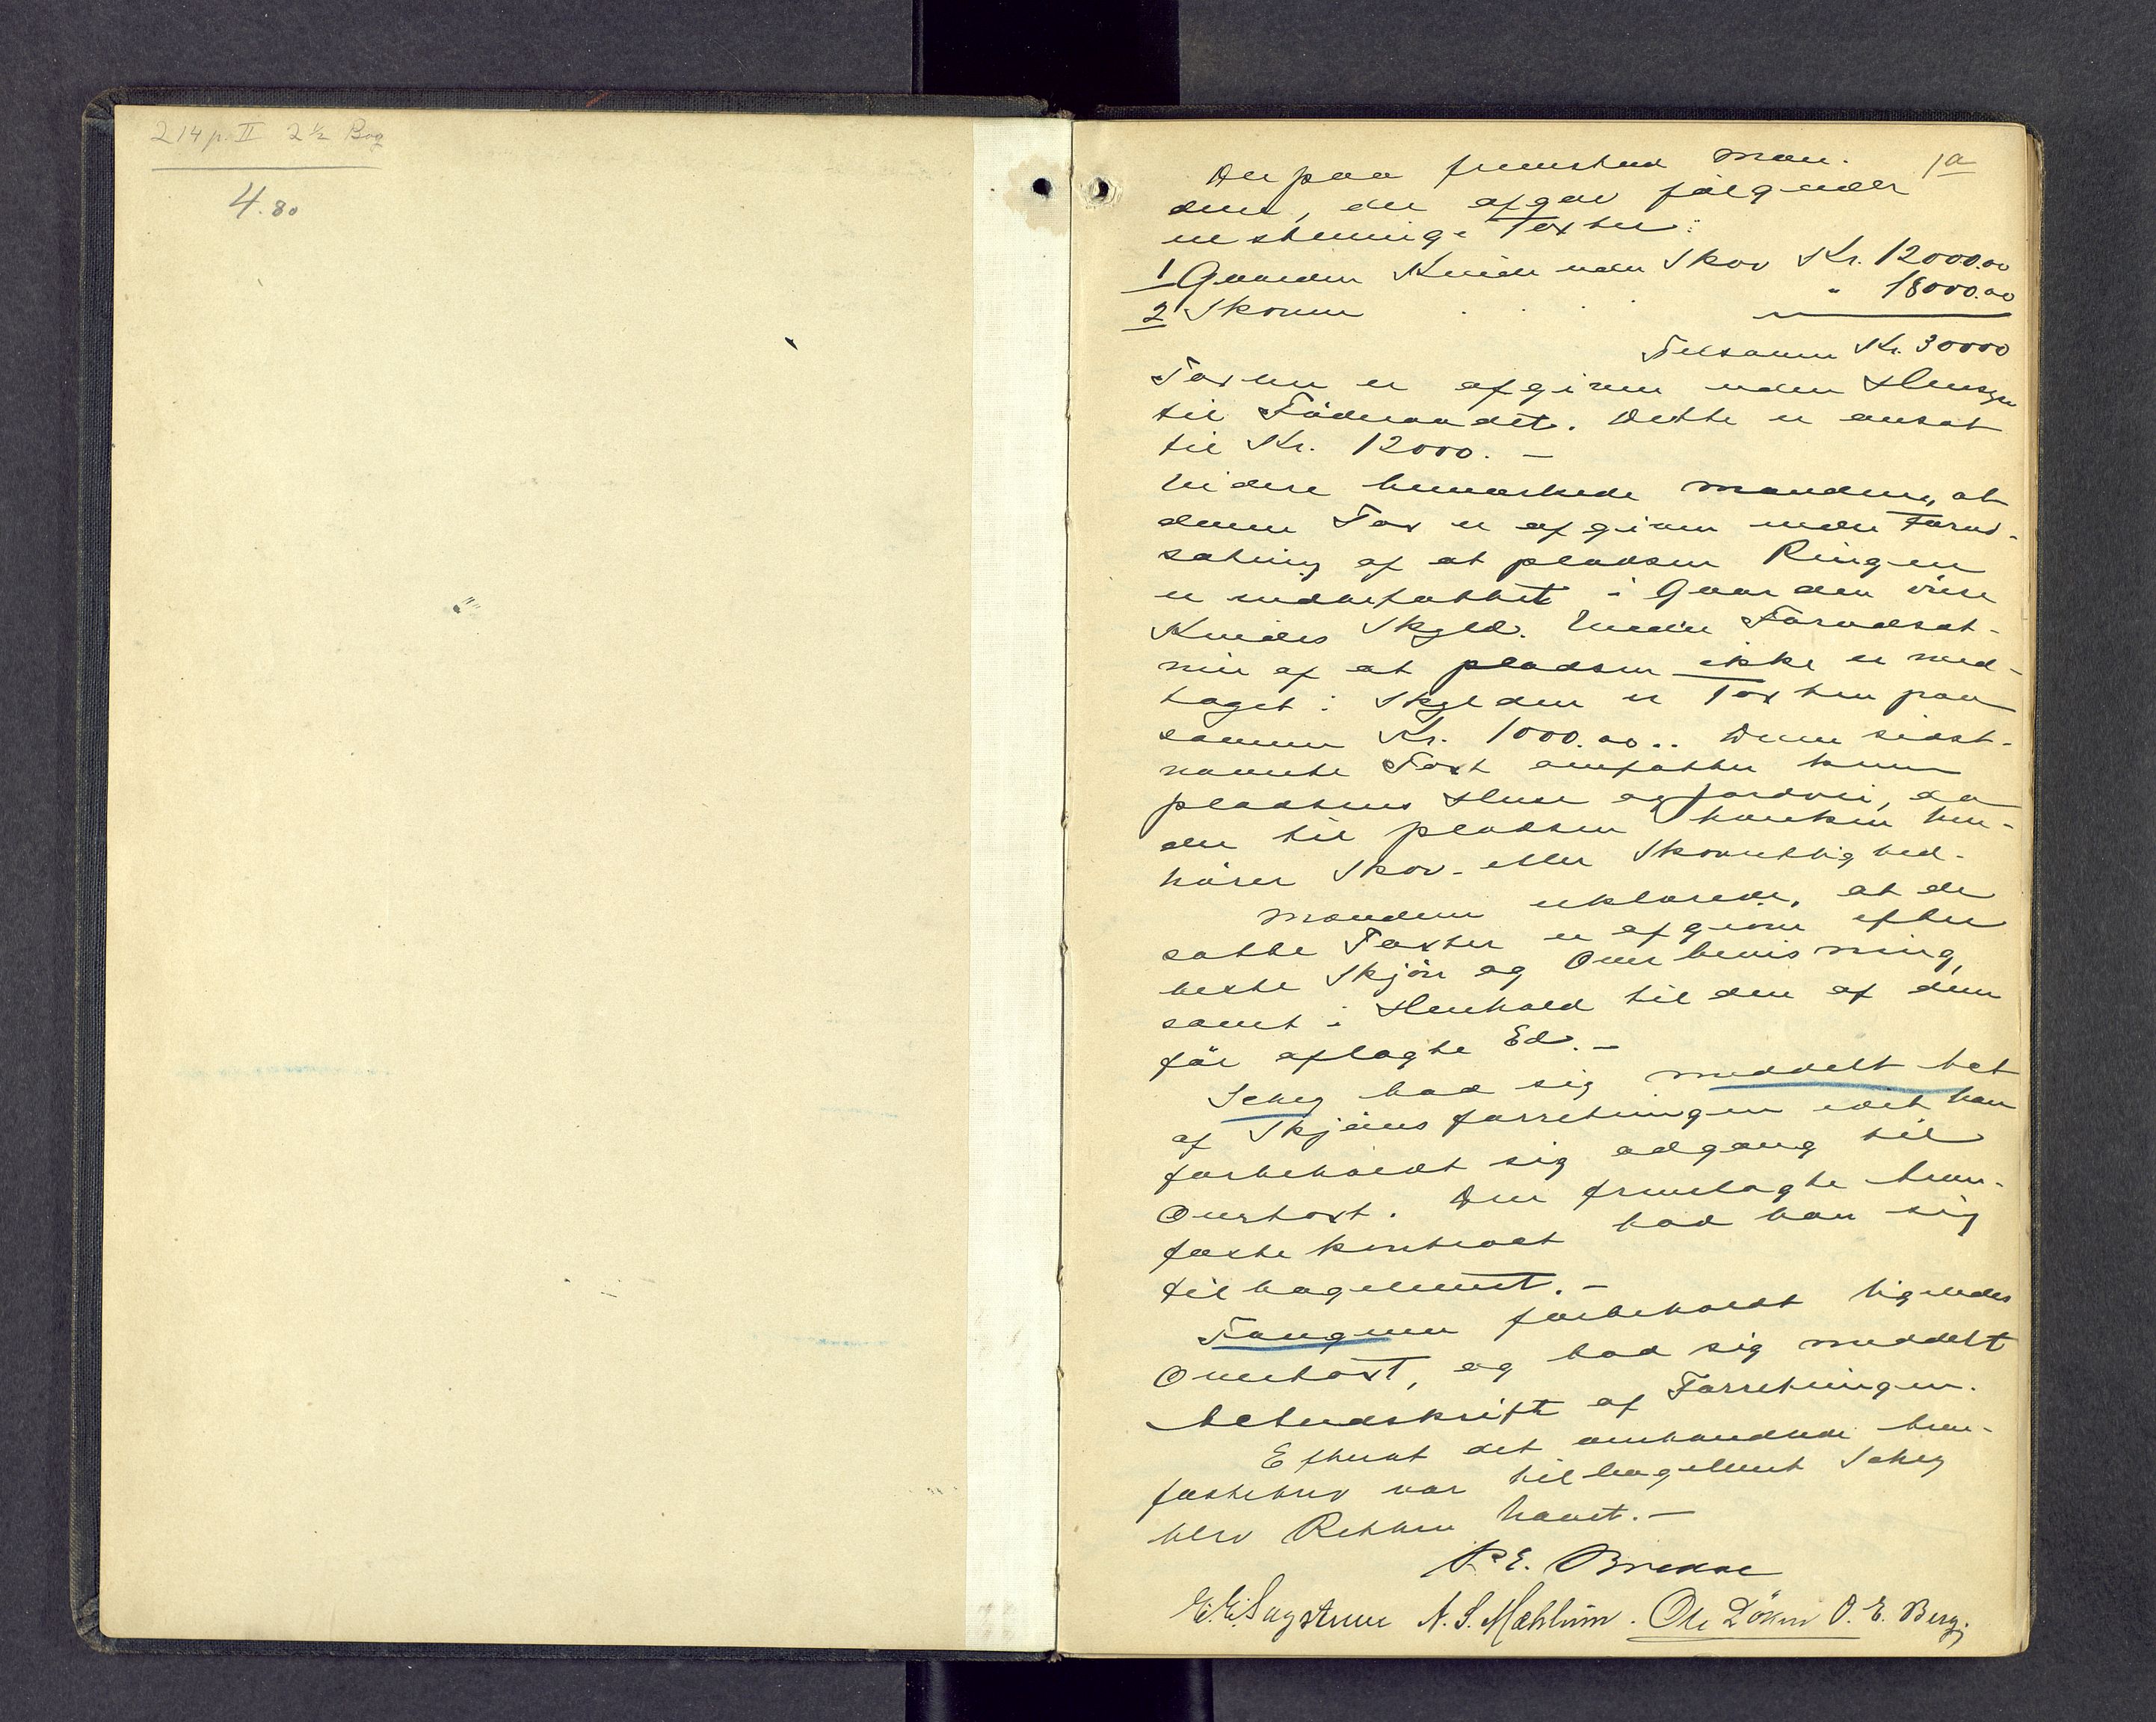 214 p. II 2 1/2 Bog
4.80
1a
Derpaa fremstod Mæn-
dene, der afgav følgende
enstemmige Taxter:
1 Gaarden Kneide uden Skov Kr. 12000.00
2 Skoven . . . " 18000.00
Tilsamm. Kr. 30000
Taxten er afgiven uden Hensyn
til Föderaadet. Dette er ansat
til Kr. 12000. —
Videre bemærkede Mændene, at
denne Tax er afgiven under Forud-
sætning af at pladsen Ringen
er indbefattet i Gaarden
Kneides Skyld. Under Forudsæt-
nin af at pladsen ikke er med-
taget i Skylden er Taxten paa
samme Kr. 1000.00.. Denne sidst-
nævnte Taxt omfatter kun
pladsens Huse og Jordvei, da
der til pladsen hverken hen-
hører Skov- eller Skovrettighed.
Mændene erklærede, at de
satte Taxter er afgivne efter
beste Skjön og Overbevisning,
samt i Henhold til den af dem
för aflagte Ed. —
Schey bad sig meddelt
af Skjönsforretningen idet han
forbeholdt sig adgang til
Overtaxt. Den fremlagte
fæstekontrakt bad han sig
tilbageleveret. —
Tangen forbeholdt ligeledes
Overtaxt, og bad sig meddelt
af Forretningen.
Efterat det omhandlede
fæstebrev var tilbageleveret Schey
blev Retten hævet. —
P. E. Bredde
N. S. Mæhlum. Ole Döhlen O. E. Berg.